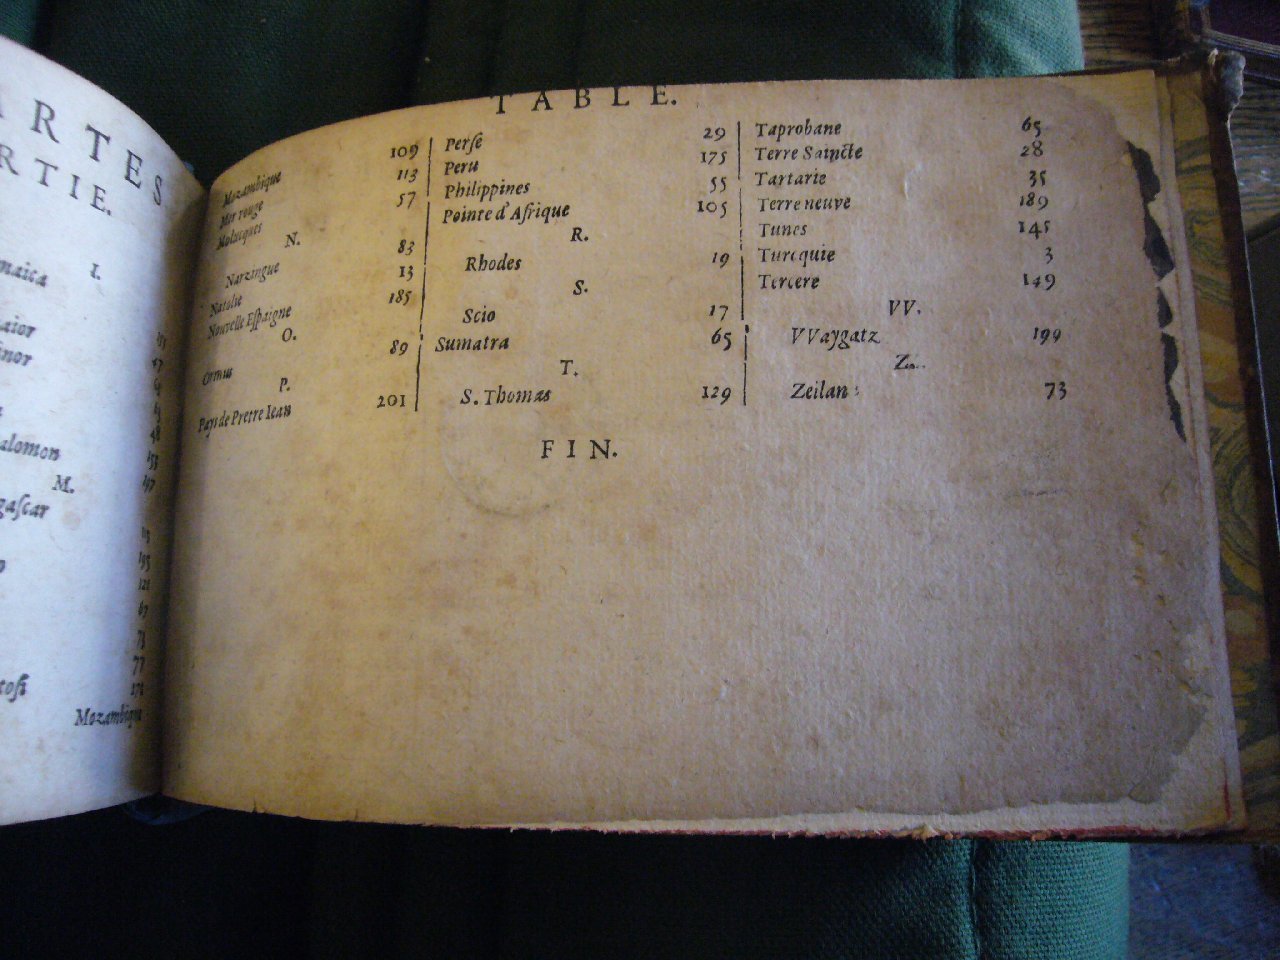 ARTES
RTIE.
I.
maica
aior
inor
alomon
M.
gaſcar
Mozambique
TABLE.
Mozambique 109
Mer rouge 113
Molucques 57
N.
Narzingue 83
Natolie 13
Nouvelle Eſpaigne 185
O.
Ormus 89
P.
Pays de Pretre Iean 201
Perſe 29
Peru 175
Philippines 55
Pointe d'Afrique 105
R.
Rhodes 19
S.
Scio 17
Sumatra 65
T.
S. Thomæs 129
Taprobane 65
Terre Saincte 28
Tartarie 35
Terre neuve 189
Tunes 145
Turcquie 3
Tercere 149
VV.
VVaygatz 199
Z.
Zeilan 73
FIN.